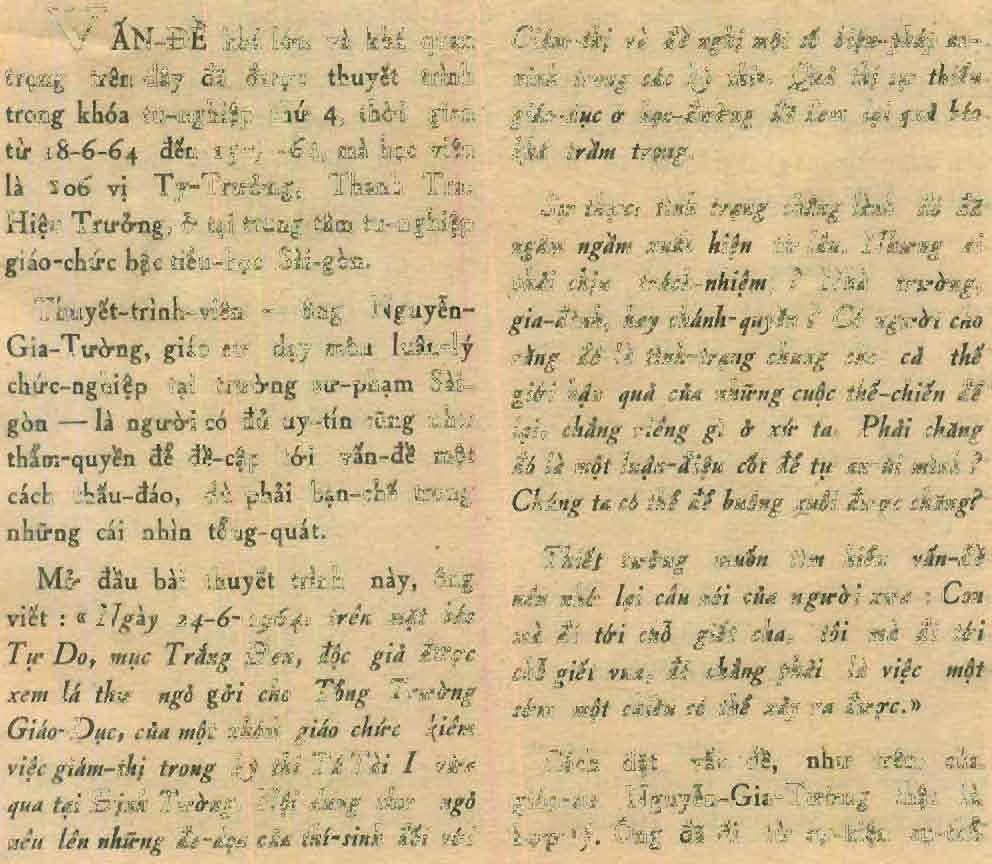 VẤN-ĐỀ khá lớn và khá quan
trọng trên đây đã được thuyết trình
trong khóa tu-nghiệp thứ 4, thời gian
từ 18-6-64 đến mà học viên
là 106 vị Ty-Trưởng, Thanh Tra,
Hiệu Trưởng, ở tại trung tâm tu-nghiệp
giáo-chức bậc tiểu-học Sài-gòn.
Thuyết-trình-viên — ông Nguyễn-
Gia-Tường, giáo sư dạy môn luân-lý
chức-nghiệp tại trường sư-phạm Sài-
gòn — là người có đủ uy-tín cũng như
thẩm-quyền để đề-cập tới vấn-đề một
cách thấu-đáo, dù phải hạn-chế trong
những cái nhìn tổng-quát.
Mở đầu bài thuyết trình này, ông
viết : « Ngày 24-6-1964, trên mặt báo
Tự Do, mục Trắng Đen, độc giả được
xem lá thư ngỏ gởi cho Tổng Trưởng
Giáo-Dục, của một nhóm giáo chức kiêm
việc giám-thị trong kỳ thi Tú Tài I vừa
qua tại Định Tường. Nội dung thư ngỏ
nêu lên những đe-dọa của thí-sinh đối với
Giám-thị và đề nghị một số biện-pháp an-
ninh trong các kỳ thi. Quả thị sự thiếu
giáo-dục ở học-đường đã đem lại quả báo
khá trầm trọng.
Sự thực, tình trạng chẳng lành đó đã
ngấm ngầm xuất hiện từ lâu. Nhưng ai
phải chịu trách-nhiệm ? Nhà trường,
gia-đình, hay chánh-quyền ? Có người cho
rằng đó là tình-trạng chung cho cả thế
giới hậu quả của những cuộc thế-chiến để
lại, chẳng riêng gì ở xứ ta. Phải chăng
đó là một luận-điệu cốt để tự an-ủi mình ?
Chúng ta có thể để buông xuôi được chăng?
Thiết tưởng muốn tìm hiểu vấn-đề
nên nhớ lại câu nói của người xưa : Con
mà đi tới chỗ giết cha, tôi mà đi tới
chỗ giết vua, đó chẳng phải là việc một
sớm một chiều có thể xảy ra được.»
Cách đặt vấn đề, như trên của
giáo-sư Nguyễn-Gia-Tường thật là
hợp lý. Ông đã đi từ sự-kiện cụ-thể